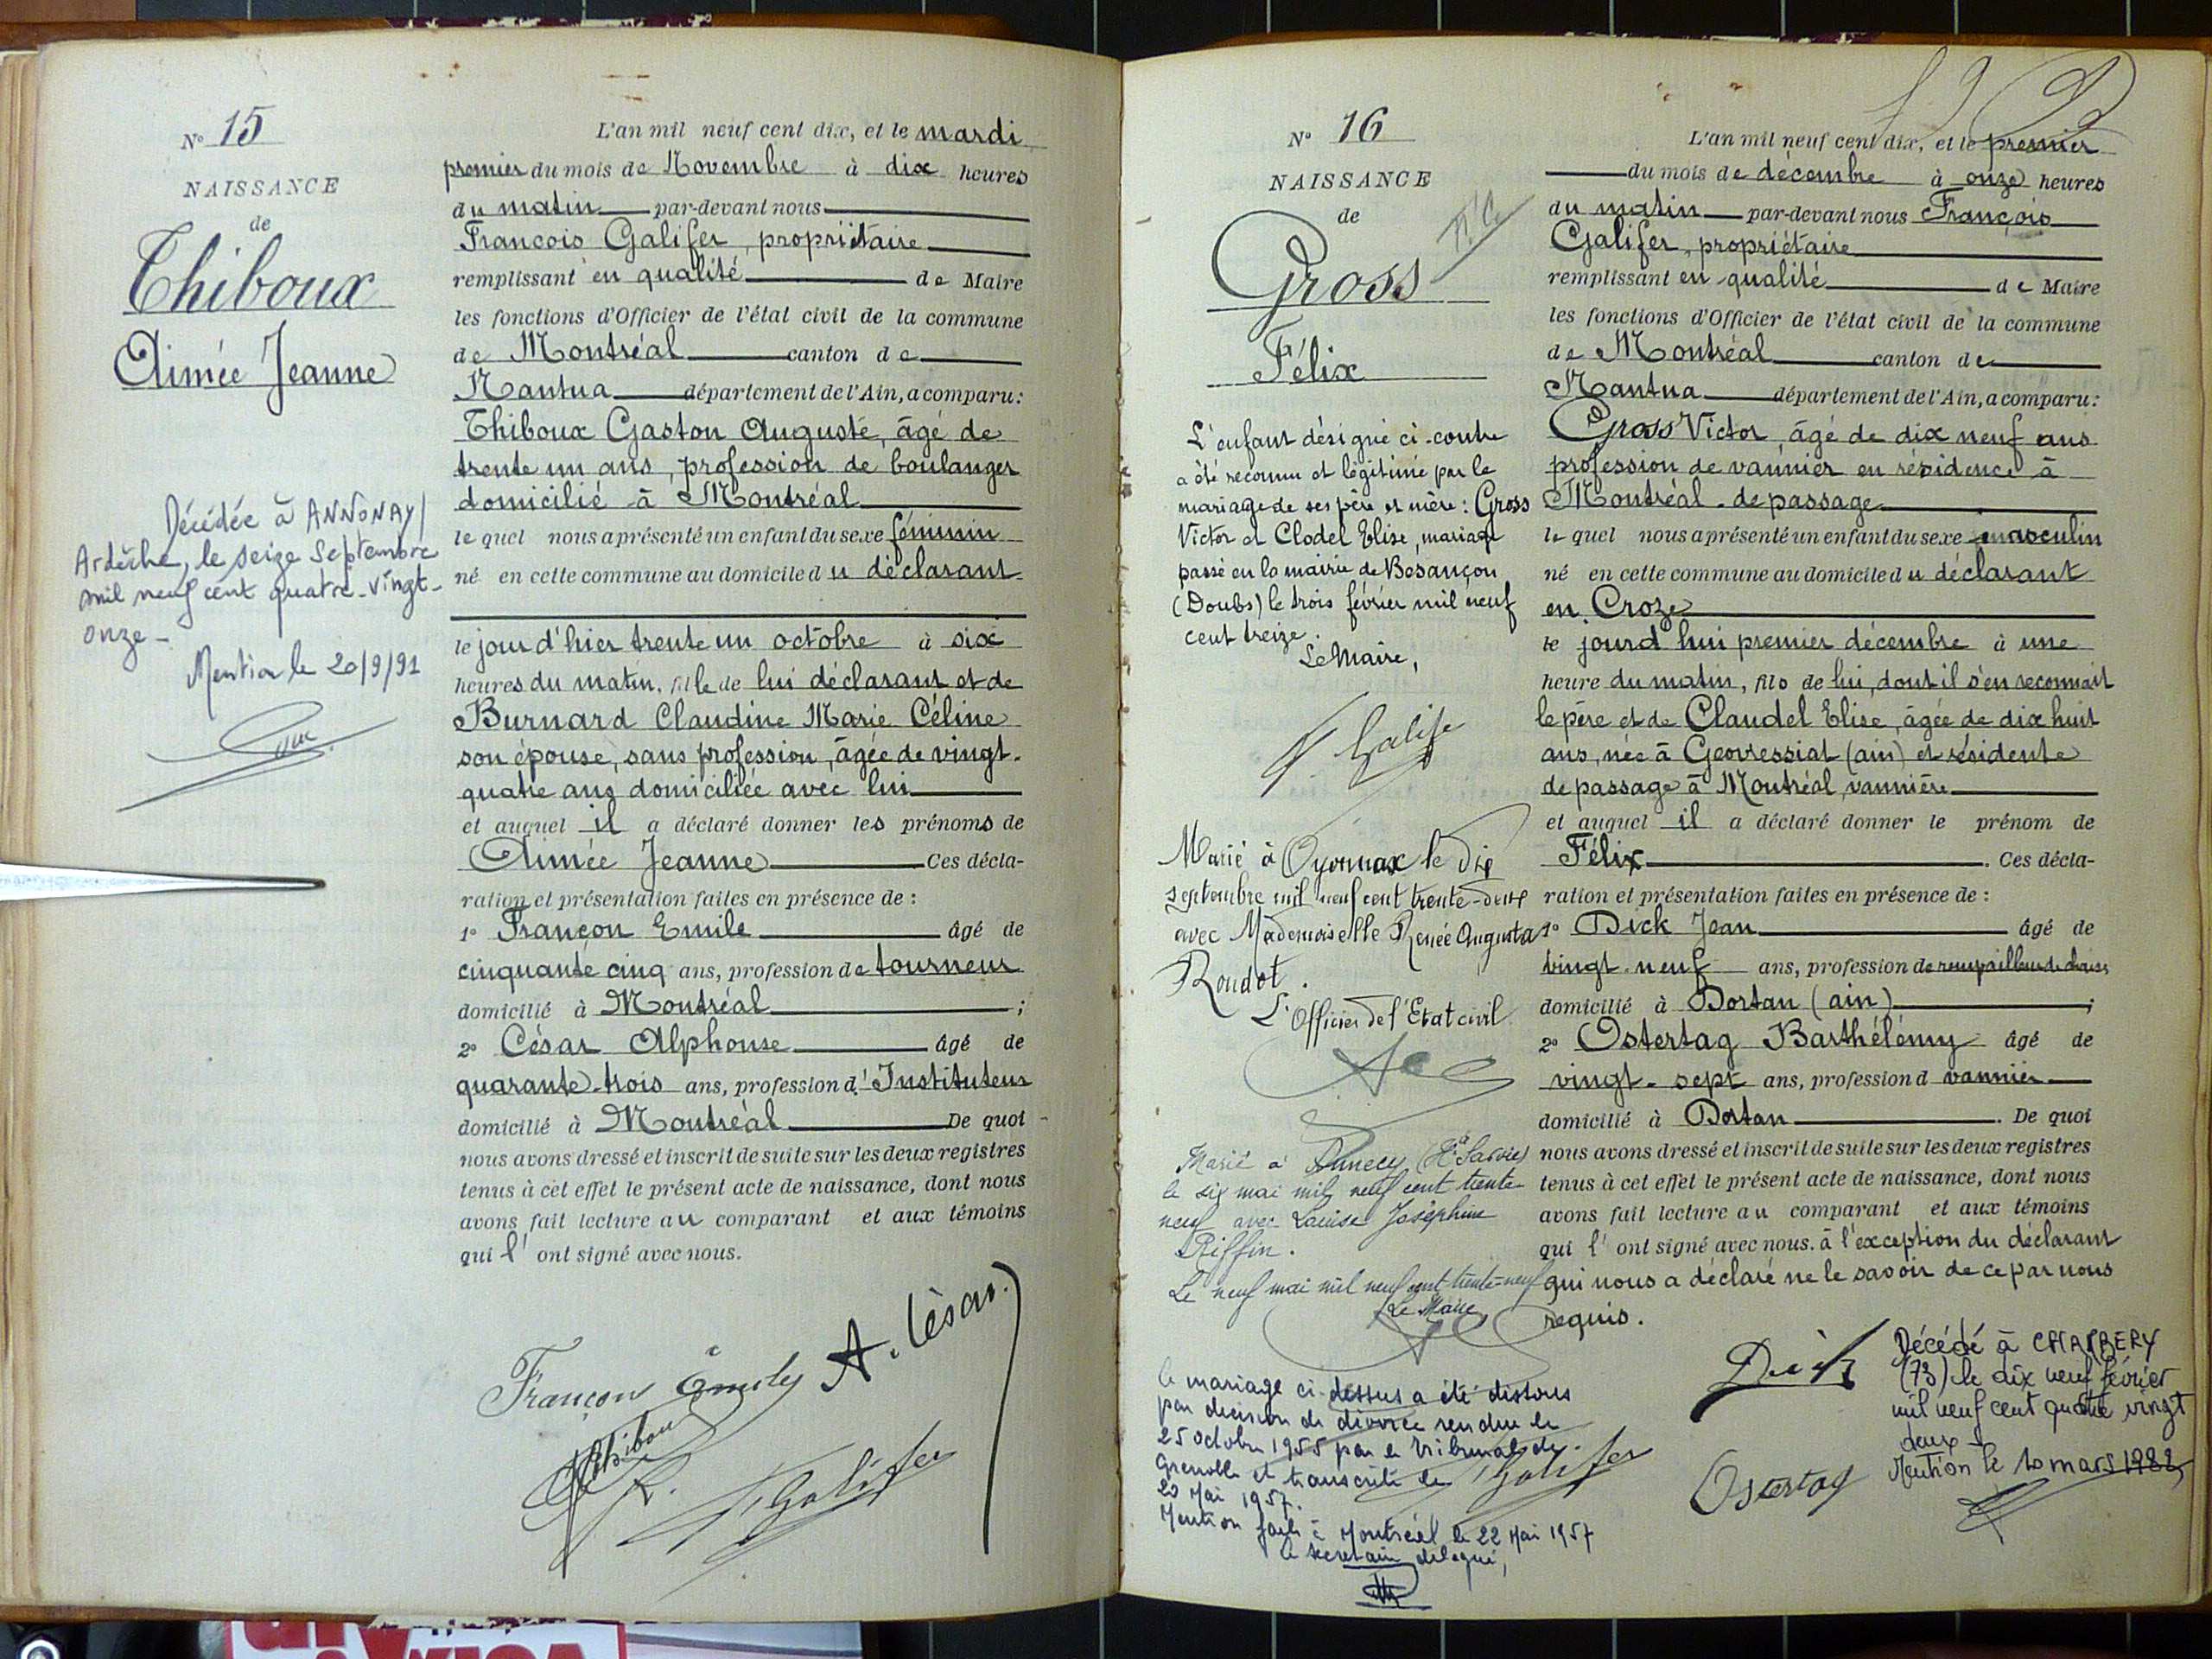 N° 15
NAISSANCE
de
Thiboux
Aimée Jeanne
Décédée à ANNONAY
Ardèche, le seize Septembre
mil neuf cent quatre-vingt-
onze-
Mention le 20/9/91
L'an mil neuf cent dix, et le mardi
premier du mois de Novembre à dix heures
du matin par-devant nous
Francois Galifer, propriétaire
remplissant en qualité de Maire
les fonctions d'Officier de l'état civil de la commune
de Montréal canton de
Nantua département de l'Ain, a comparu:
Thiboux Gaston Auguste, âgé de
trente un ans, profession de boulanger
domicilié à Montréal
le quel nous a présenté un enfant du sexe féminin
né en cette commune au domicile du déclarant.
le jour d'hier trente un octobre à six
heures du matin, fille de lui déclarant et de
Burnard Claudine Marie Céline
son épouse, sans profession, âgée de vingt-
quatre ans domiciliée avec lui
et auquel il a déclaré donner les prénoms de
Aimée Jeanne Ces décla-
ration et présentation faites en présence de :
1° Françon Emile âgé de
cinquante cinq ans, profession de tourneur
domicilié à Montréal ;
2° César Alphonse âgé de
quarante-trois ans, profession d'Instituteur
domicilié à Montréal De quoi
nous avons dressé et inscrit de suite sur les deux registres
tenus à cet effet le présent acte de naissance, dont nous
avons fait lecture au comparant et aux témoins
qui l'ont signé avec nous.
Françon Emile A. César
Thiboux
Galifer
N° 16
NAISSANCE
de
Gross
Félix
L'enfant désigné ci-contre
a été reconnu et légitimé par le
mariage de ses père et mère : Gross
Victor et Clodel Elise, mariage
passé en la mairie de Besançon
(Doubs) le trois février mil neuf
cent treize.
Le Maire,
F. Galife
Marié à Oyonnax le dix
septembre mil neuf cent trente-deux
avec Mademoiselle Renée Augusta
Roudot.
L'Officier de l'Etat civil
Marié à Annecy (Hte Savoie)
le six mai mil neuf cent trente
neuf avec Louise Joséphine
Riffin.
Le neuf mai mil neuf cent trente-neuf
Le Maire,
le mariage ci-dessus a été dissous
par décision de divorce rendue le
25 octobre 1955 par le tribunal de
Grenoble et transcrite le
20 Mai 1957.
Mention faite à Montréal le 22 Mai 1957
le secrétaire délégué,
L'an mil neuf cent dix, et le premier
du mois de décembre à onze heures
du matin par-devant nous François
Galifer, propriétaire
remplissant en qualité de Maire
les fonctions d'Officier de l'état civil de la commune
de Montréal canton de
Nantua département de l'Ain, a comparu:
Gross Victor âgé de dix neuf ans
profession de vannier en résidence à
Montréal - de passage
le quel nous a présenté un enfant du sexe masculin
né en cette commune au domicile du déclarant
en Croze
le jourd'hui premier décembre à une
heure du matin, fils de lui, dont il s'en reconnait
le père et de Claudel Elise, âgée de dix huit
ans, née à Geovressiat (ain) et résidente
de passage à Montréal, vannière
et auquel il a déclaré donner le prénom de
Félix . Ces décla-
ration et présentation faites en présence de :
1° Dick Jean âgé de
vingt-neuf ans, profession de rempailleur de chaises
domicilié à Dortan (ain) ;
2° Ostertag Barthélémy âgé de
vingt-sept ans, profession d vannier
domicilié à Dortan . De quoi
nous avons dressé et inscrit de suite sur les deux registres
tenus à cet effet le présent acte de naissance, dont nous
avons fait lecture au comparant et aux témoins
qui l'ont signé avec nous. à l'exception du déclarant
qui nous a déclaré ne le savoir de ce par nous
requis.
Galifer
Ostertag
Décédé à CHAMBERY
(73) le dix neuf février
mil neuf cent quatre vingt
deux -
Mention le 10 mars 1982